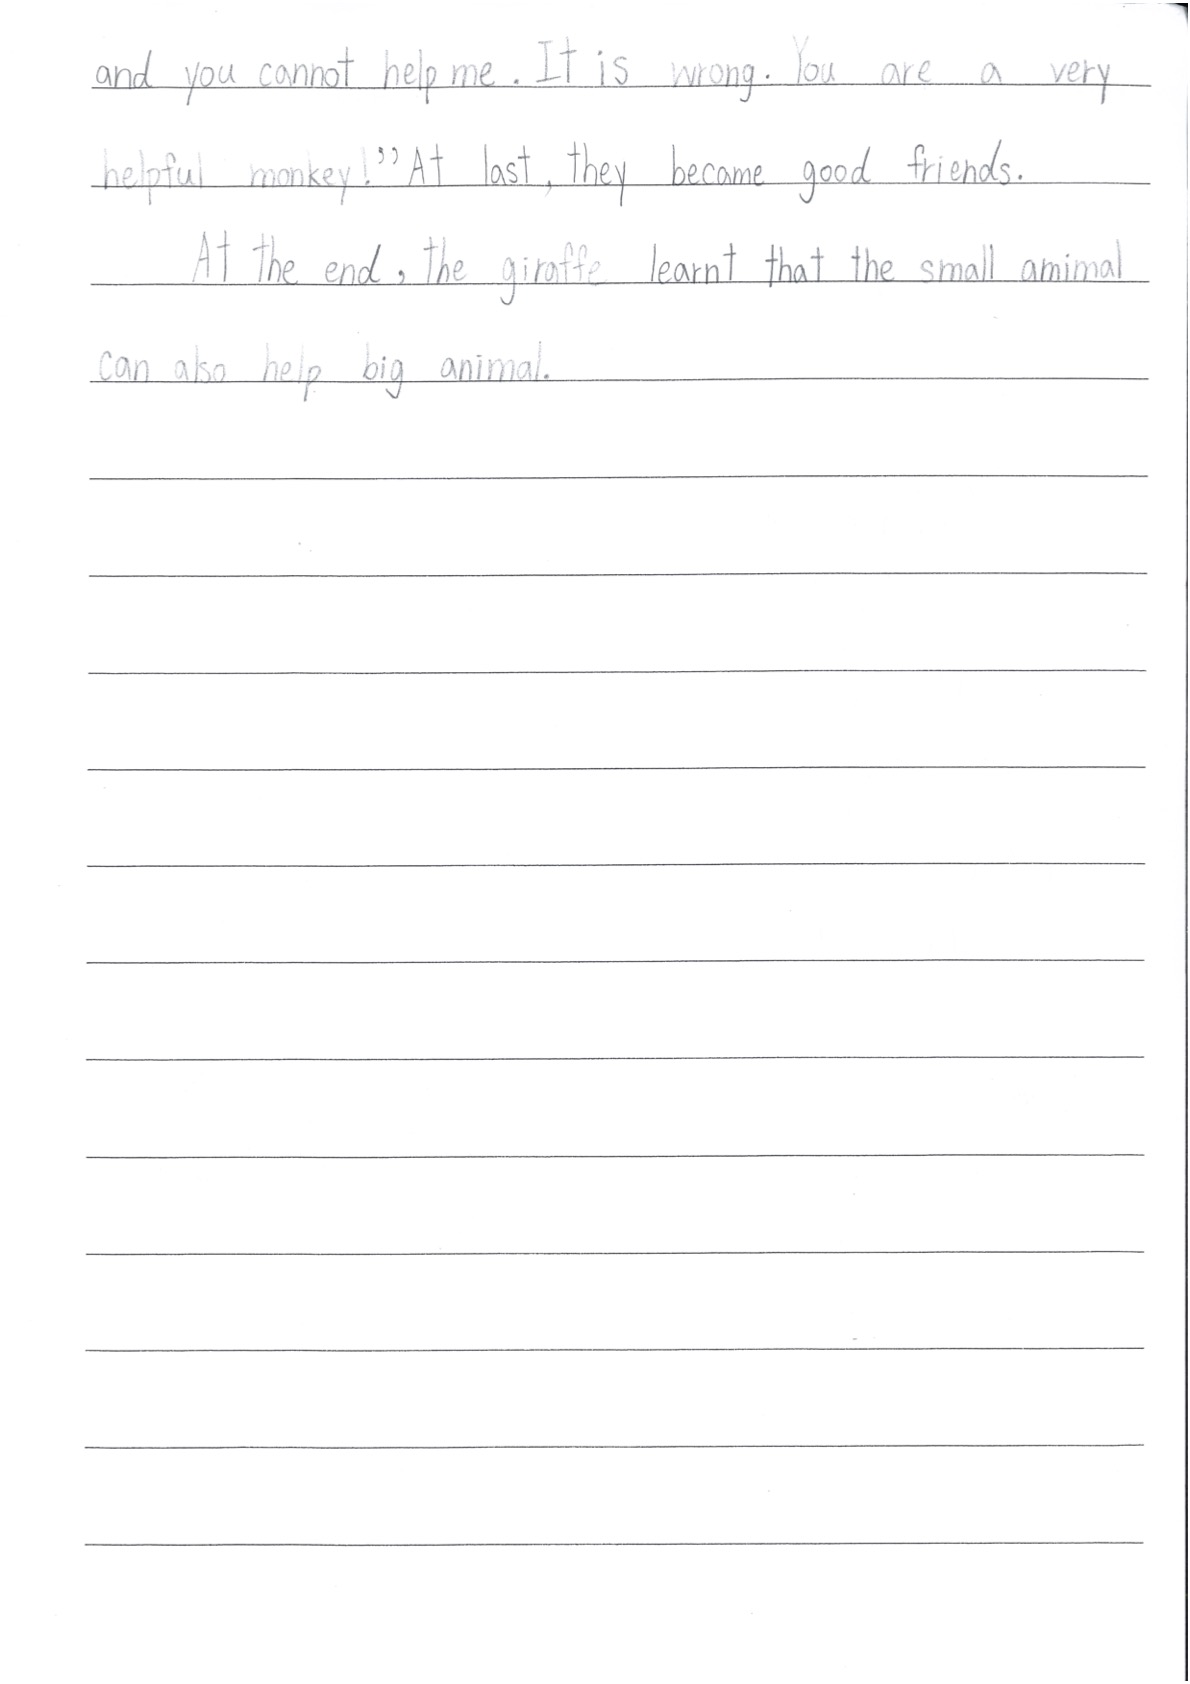 and you cannot help me. It is wrong. You are a very
helpful monkey!” At last, they became good friends.
At the end, the giraffe learnt that the small amimal
can also help big animal.